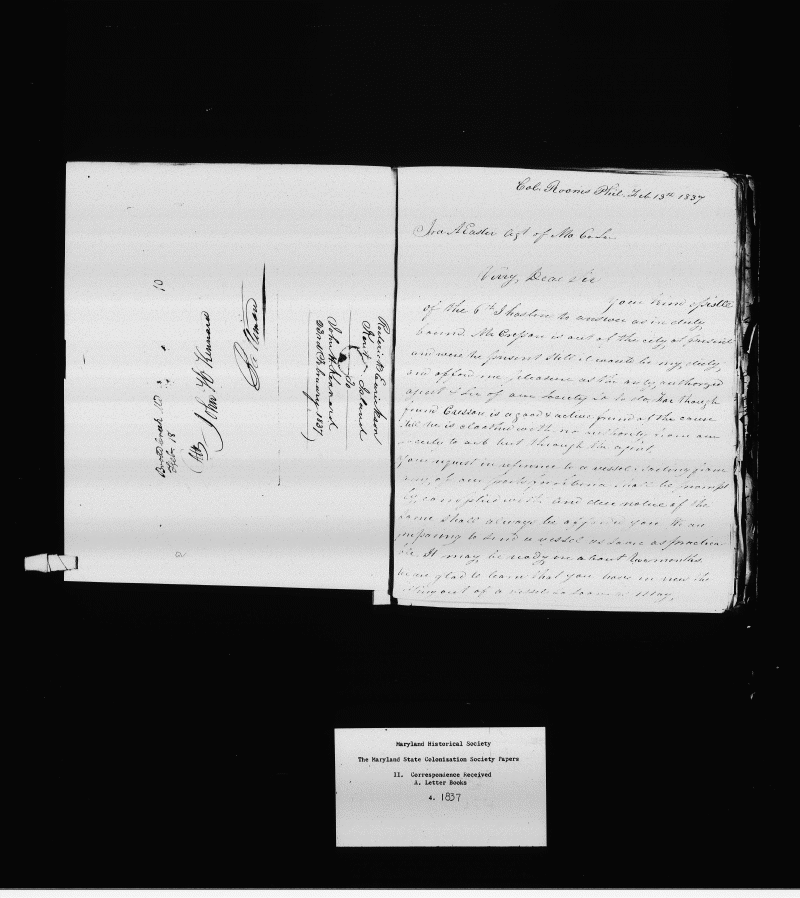 10
Broad Creek Md
Feby 18
John H Kennard
Baltimore
Roderick B. Ewrickson
Kent Island
to
John H Kennard
22nd February 1837
Col. Rooms Phil. Feb 13th 1837
Ira A Easter Agt of Md. C. S.
Very Dear Sir
Your kind epistle
of the 6th I hasten to answer as in duty
bound. Mr Cresson is out of the city at present
and were he present still it would be my duty
and afford me pleasure as the only authorized
agent & Sec of our Society so to do. For though
friend Cresson is a good & active friend of the cause
still he is clothed with no authority from our
society to act but through the agent.
Your request in reference to a vessel sailing from
any of our ports for Liberia shall be prompt
ly complied with and due notice of the
same shall always be afforded you. We are
preparing to send a vessel as soon as practica
ble. It may be ready in about two months.
We are glad to learn that you have in view the
of a vessel as soon as May,
Maryland Historical Society
The Maryland State Colonization Society Papers
II. Correspondence Received
A. Letter Books
4. 1837